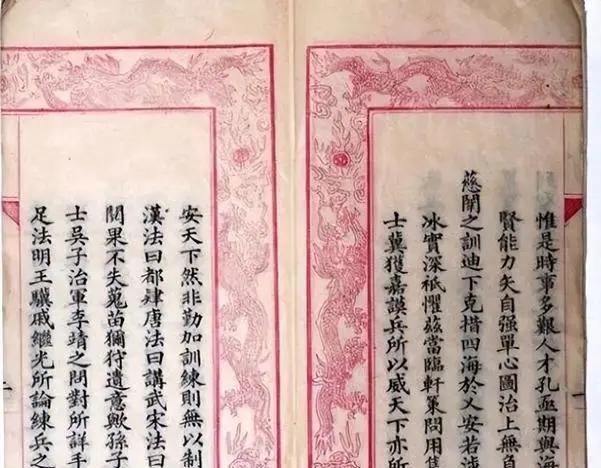 惟是時事多艱人才孔亟期與海
賢能力矢自强單心圖治上無負
慈闈之訓迪下克措四海於乂安若涉
冰實深祇懼茲當臨軒策問用集
士冀獲嘉謨兵所以威天下亦所
安天下然非勤加訓練則無以制
漢法曰都肄唐法曰講武宋法曰
閱果不失蒐苗獮狩遺意歟孫子
士吳子治軍李靖之問對所詳手
足法明王驥戚繼光所論練兵之